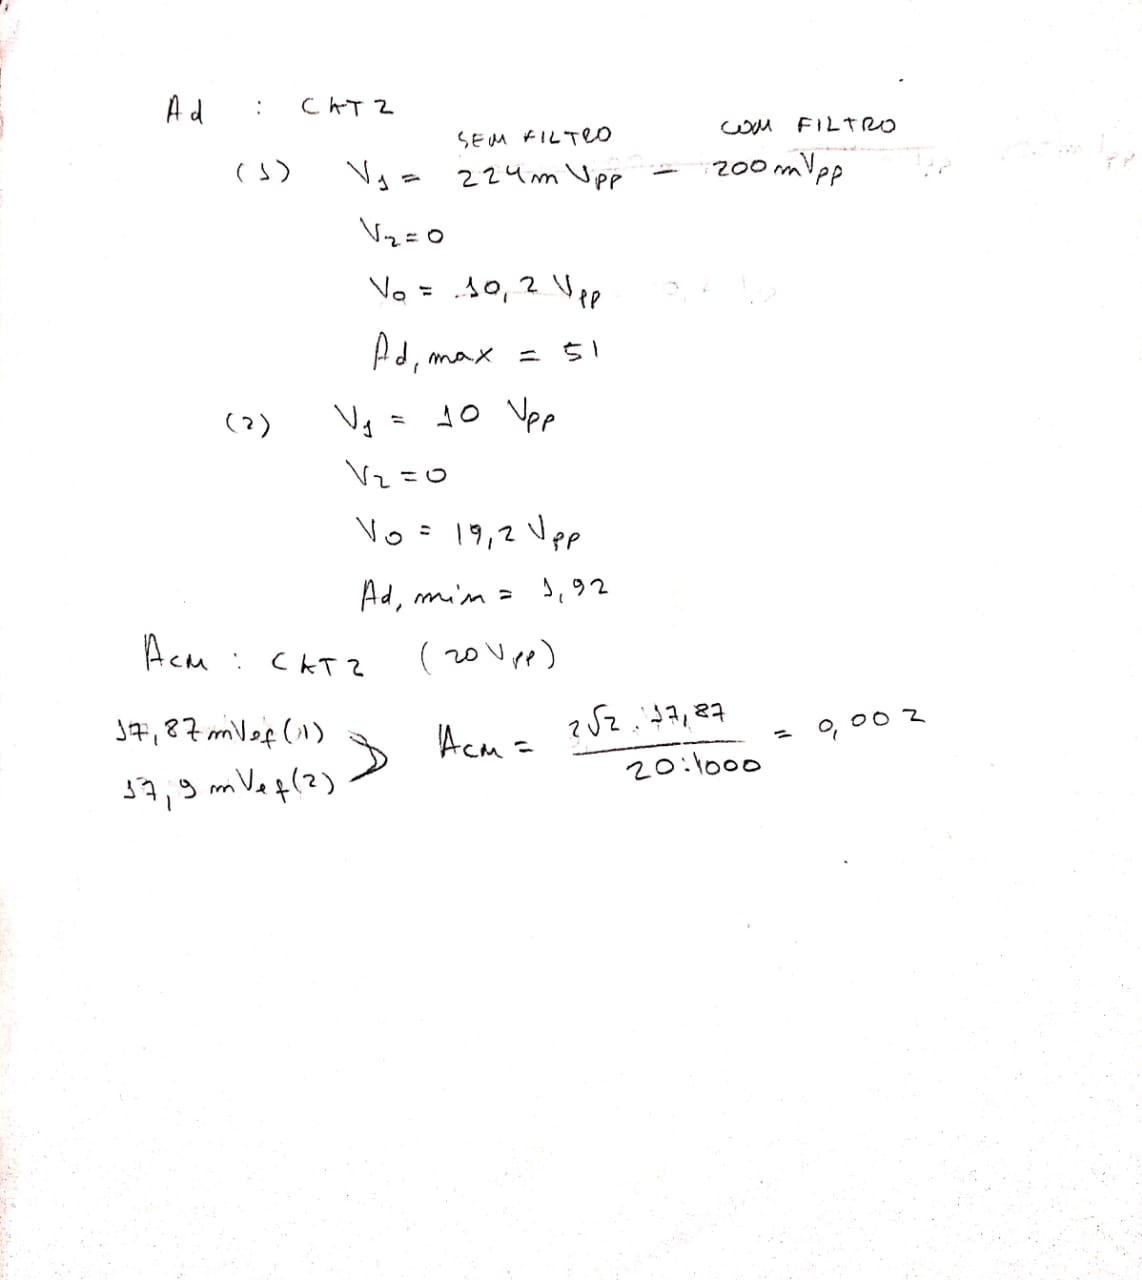 Ad : CAT 2
SEM FILTRO COM FILTRO
(1) V1 = 224m Vpp - 200 mVpp
V2 = 0
Vo = 10,2 Vpp
Ad, max = 51
(2) V1 = 10 Vpp
V2 = 0
Vo = 19,2 Vpp
Ad, min = 1,92
Acm : CAT 2 (20 Vpp)
17,87 mVef (1)
17,9 mVef (2)
Acm = 2√2 . 17,87 / 20.1000 = 0,002